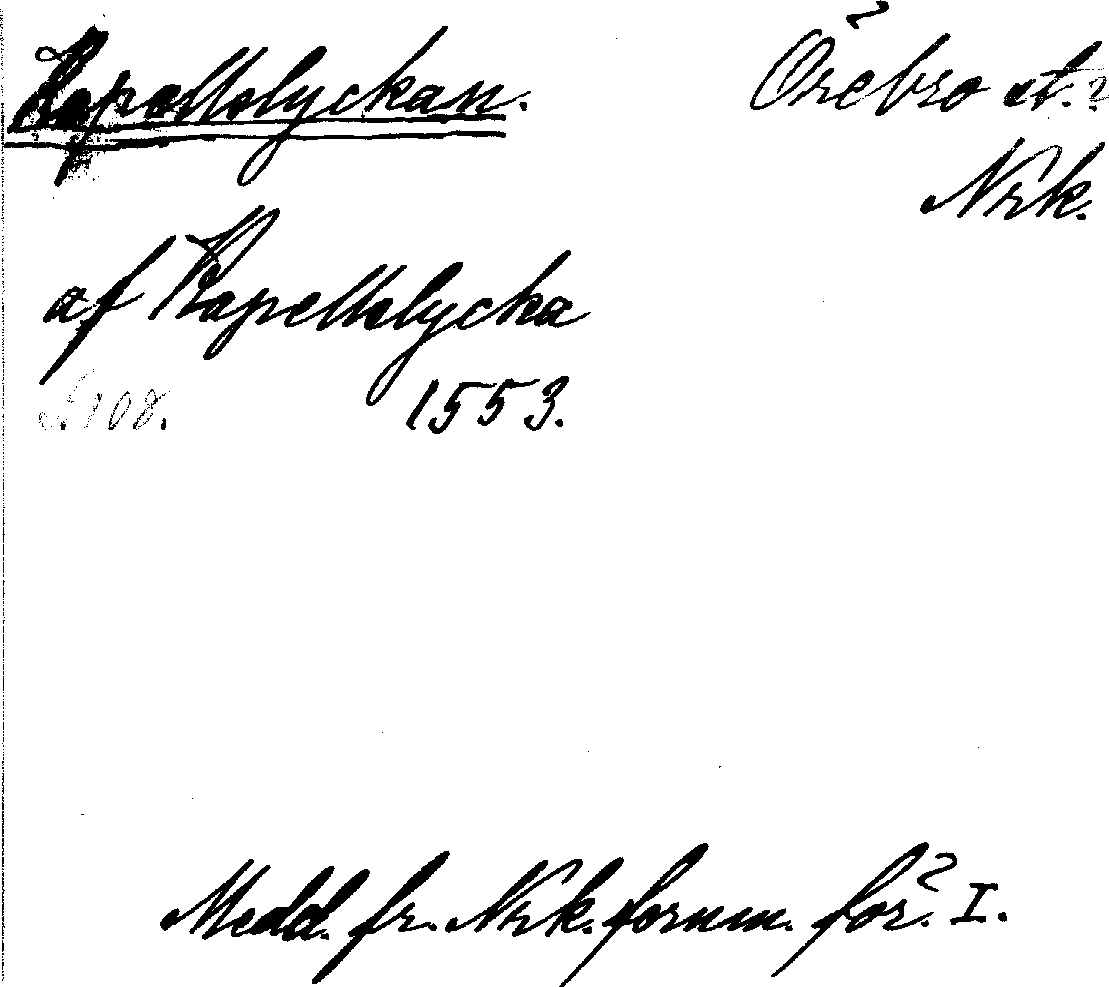 Kapellelyckan.
Örebro st.?
Nrk.
af Kapellelycka
S. 108. 1553.
Medd. fr. Nrk. fornm. för. I.